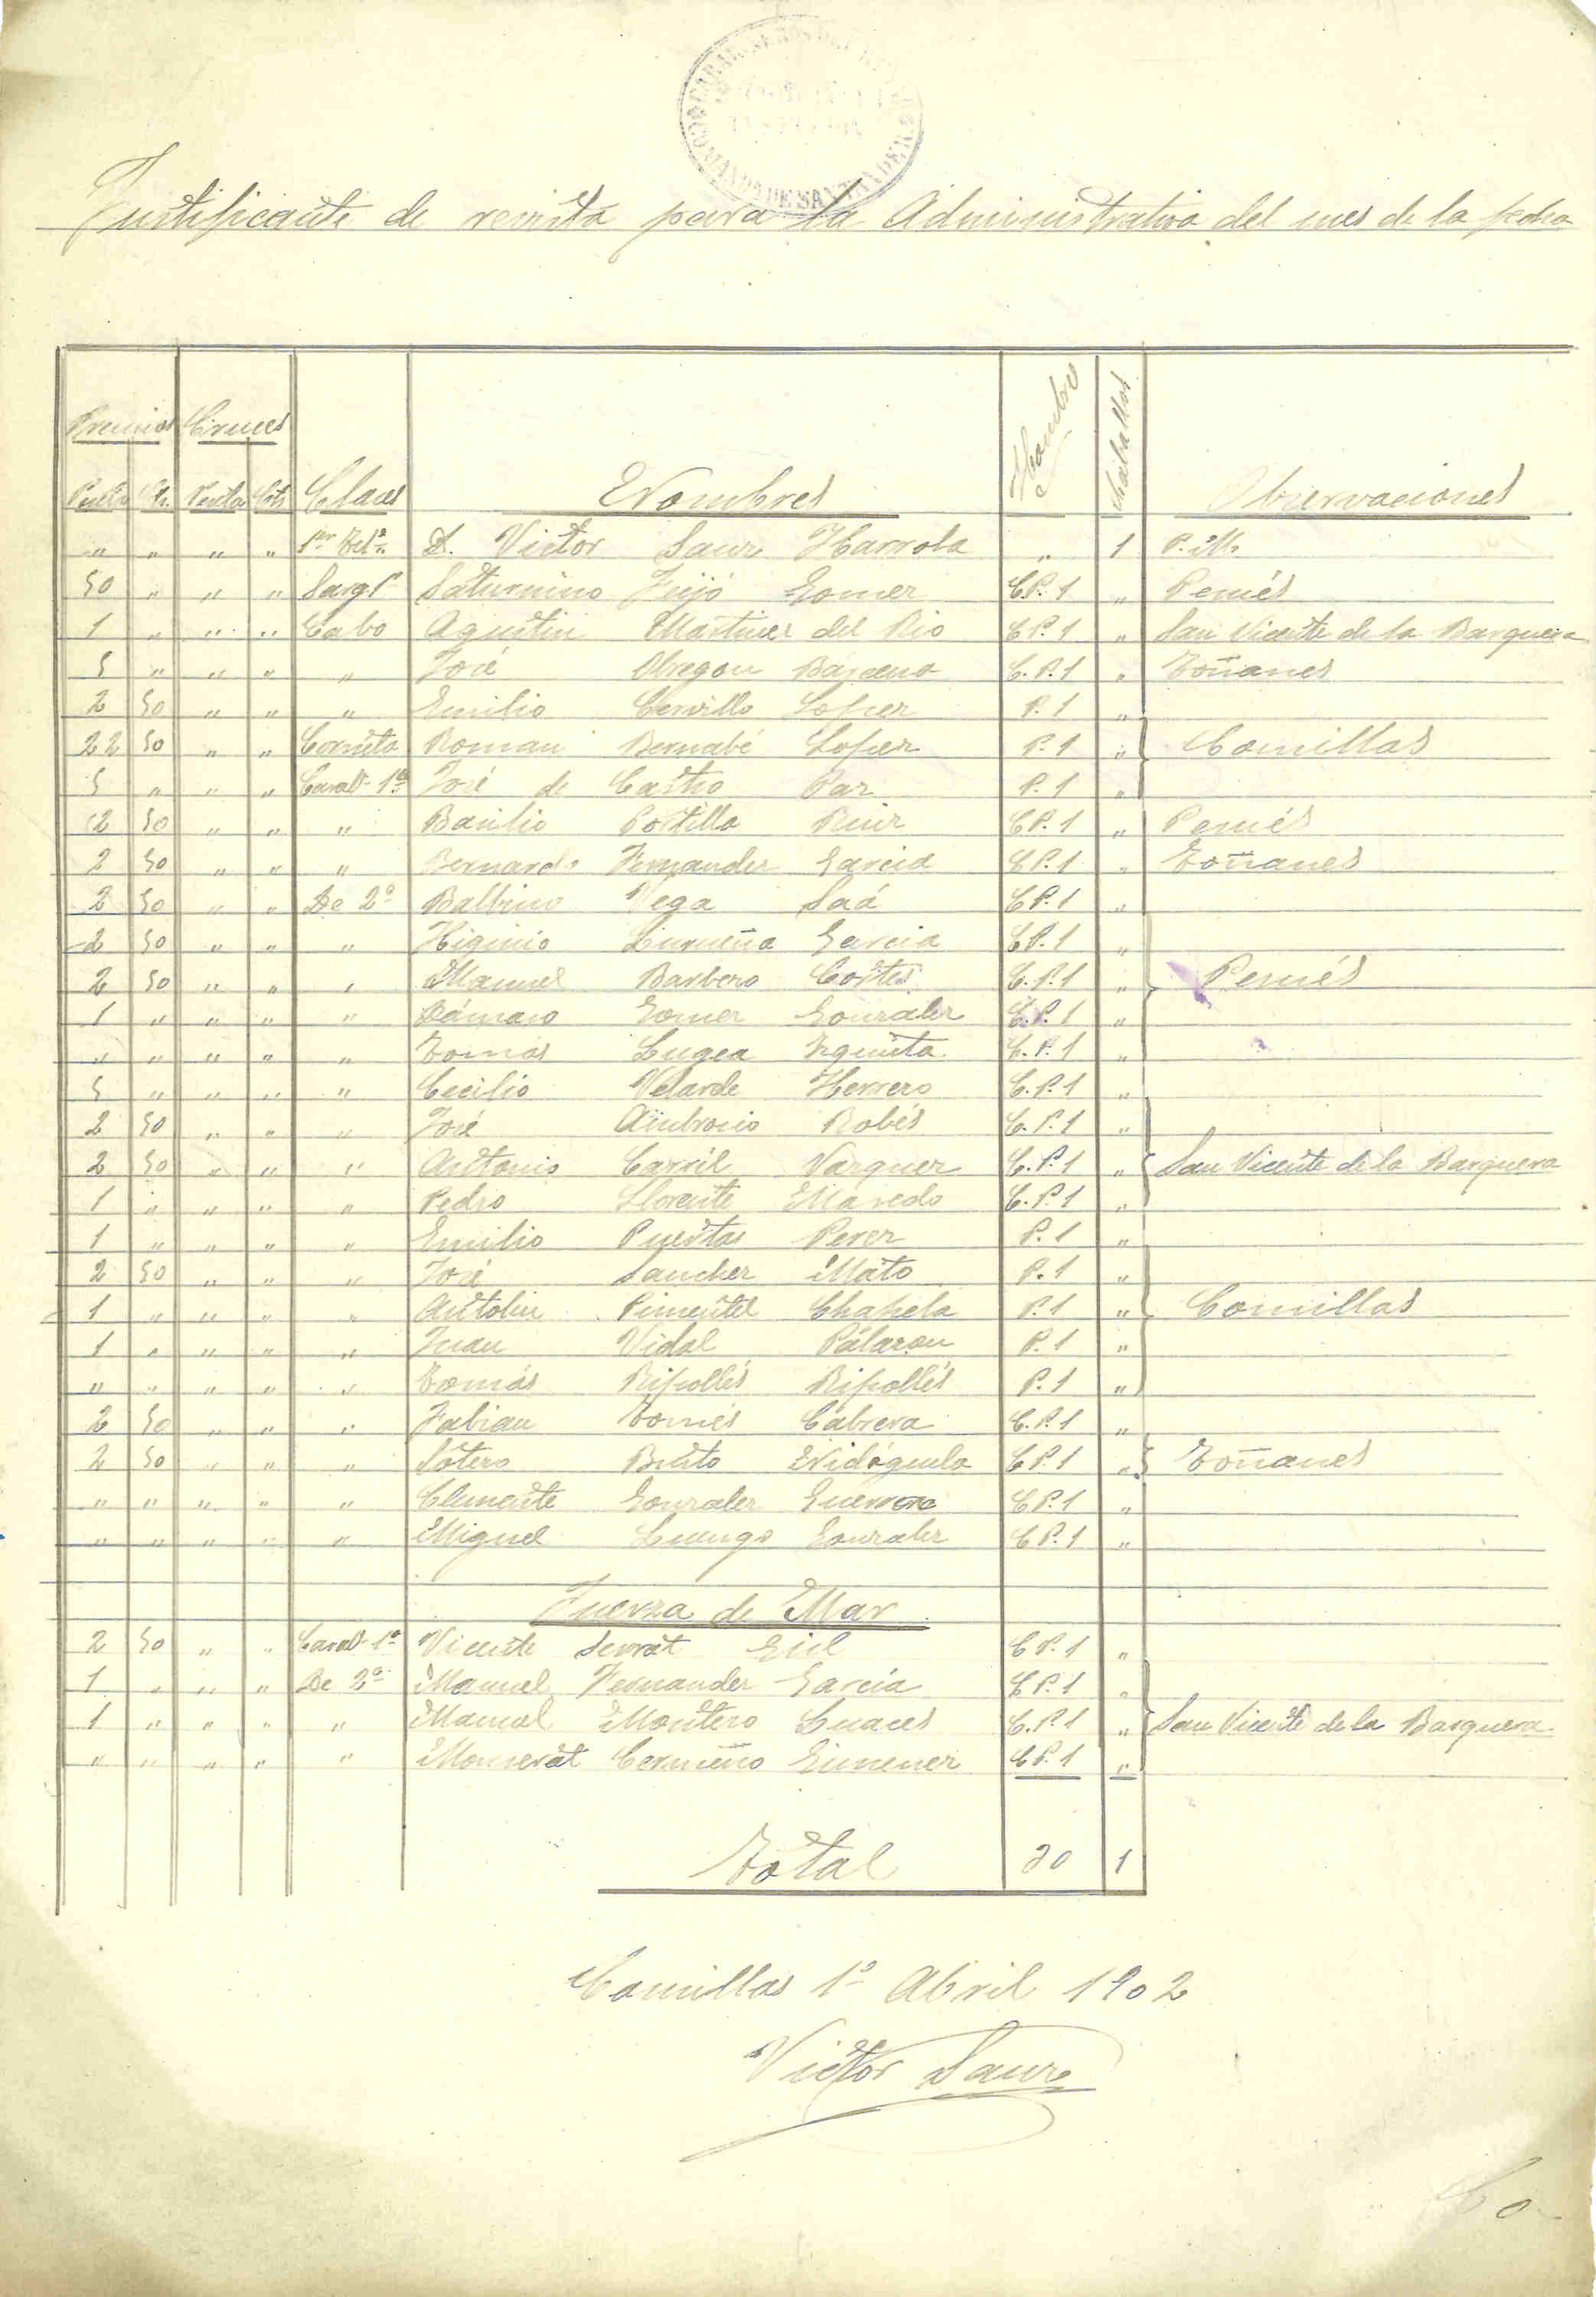 COMANDA DE SANTANDER
Justificante de revista para la Administrativa del mes de la fecha
Premios Cruces Clases Nombres Hombres Caballos Observaciones
Pesetas Cts. Pesetas Cts
" " " " 1er Tete. D. Victor Sanz " 1 P. M.
50 " " " Sargto Saturnino Feijó Gomez C.P. 1 " Pesués
1 " " " Cabo Agustin Martinez del Rio C.P. 1 " San Vicente de la Barquera
5 " " " " José Obregon Barcena C.P. 1 " Toñanes
2 50 " " " Emilio Lopez P. 1 "
22 50 " " Corneta Roman Bernabé Lopez P. 1 " Comillas
5 " " " Carab. 1ª José de Castro Paz P. 1 "
2 50 " " " Basilio Portilla Ruiz C.P. 1 " Pesués
2 50 " " " Bernardo Fernandez Garcia C.P. 1 " Toñanes
2 50 " " De 2ª Balbino Vega Saá C.P. 1 "
2 50 " " " Higinio Garcia C.P. 1 "
2 50 " " " Manuel Barbero Cortes C.P. 1 " Pesués
1 " " " " Dámaso Gomez Gonzalez C.P. 1 "
" " " " " Tomas C.P. 1 "
5 " " " " Cecilio Velarde Herrero C.P. 1 "
2 50 " " " José Ambrosio Robés C.P. 1 "
2 50 " " " Antonio Carril Vazquez C.P. 1 " San Vicente de la Barquera
1 " " " " Pedro Llorente C.P. 1 "
1 " " " " Emilio Puertas Perez P. 1 "
2 50 " " " José Sanchez Mato P. 1 "
1 " " " " Antolin Pimentel Chapela P. 1 " Comillas
1 " " " " Juan Vidal Palazon P. 1 "
" " " " " Tomás Ripollés Ripollés P. 1 "
2 50 " " " Fabian Tomés Cabrera C.P. 1 "
2 50 " " " Sotero Benito Nidáguila C.P. 1 " Toñanes
" " " " " Clemente Gonzalez Guerrero C.P. 1 "
" " " " " Miguel Luengo Gonzalez C.P. 1 "
Fuerza de Mar
2 50 " " Carab. 1ª Vicente Serrat Gil C.P. 1 "
1 " " " De 2ª Manuel Fernandez Garcia C.P. 1 "
1 " " " " Manuel Montero Luaces C.P. 1 " San Vicente de la Barquera
" " " " " Monserat Cermeño Gimenez C.P. 1 "
Total 30 1
Comillas 1º Abril 1902
Victor Sanz